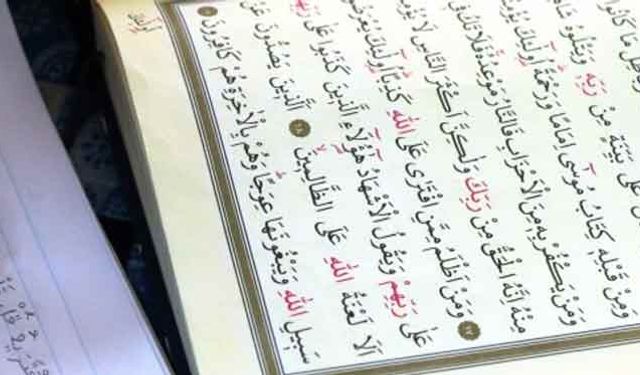 مَا كَانُوا
بَيِّنَةٍ مِنْ رَبِّهِ وَيَتْلُوهُ
وَمِنْ قَبْلِهِ كِتَابُ مُوسَى إِمَامًا وَرَحْمَةً أُولَٰئِكَ
وَمَنْ يَكْفُرْ بِهِ مِنَ الْأَحْزَابِ فَالنَّارُ مَوْعِدُهُ فَلَا تَكُ
مِنْهُ إِنَّهُ الْحَقُّ مِنْ رَبِّكَ وَلَكِنَّ أَكْثَرَ النَّاسِ لَا
١٧ وَمَنْ أَظْلَمُ مِمَّنِ افْتَرَى عَلَى اللهِ كَذِبًا أُولَٰئِكَ
عَلَى رَبِّهِمْ وَيَقُولُ الْأَشْهَادُ هَٰؤُلَاءِ الَّذِينَ كَذَبُوا عَلَى
أَلَا لَعْنَةُ اللهِ عَلَى الظَّالِمِينَ ١٨ الَّذِينَ يَصُدُّونَ عَنْ
سَبِيلِ اللهِ وَيَبْغُونَهَا عِوَجًا وَهُمْ بِالْآخِرَةِ هُمْ كَافِرُونَ